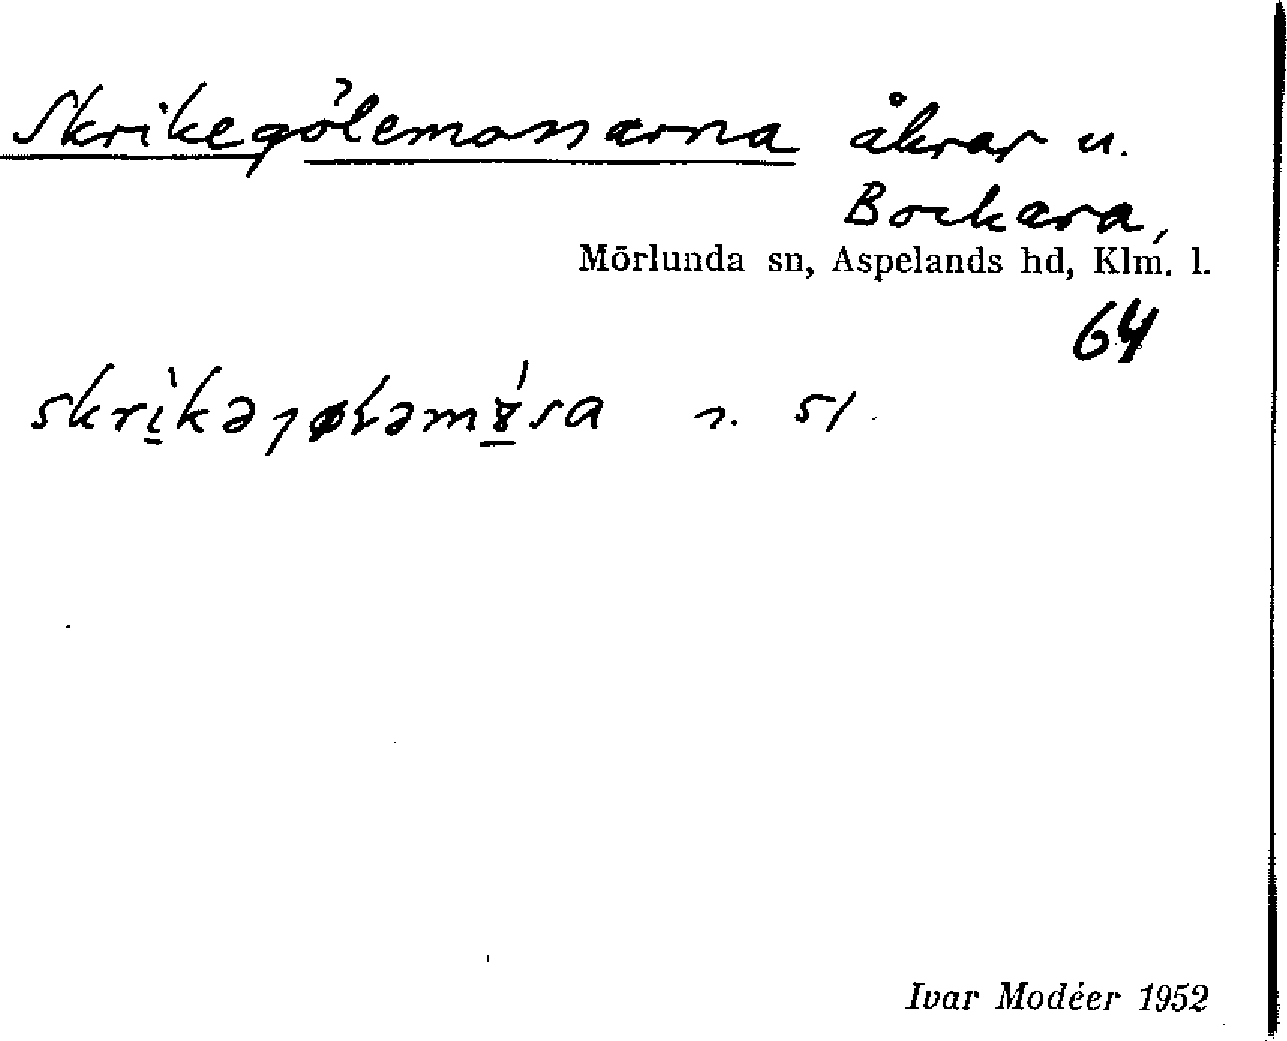 Skrikegölemossarna åkrar u.
Bockara,
Mörlunda sn, Aspelands hd, Klm. l.
64
skrìkəȷøɫəmɤ́sa n. 51.
Ivar Modéer 1952